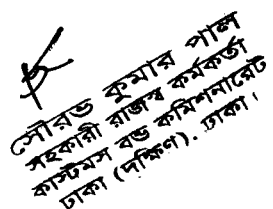 সৌরভ কুমার পাল
সহকারী রাজস্ব কর্মকর্তা
কাস্টমস বন্ড কমিশনারেট
ঢাকা (দক্ষিণ). ঢাকা।